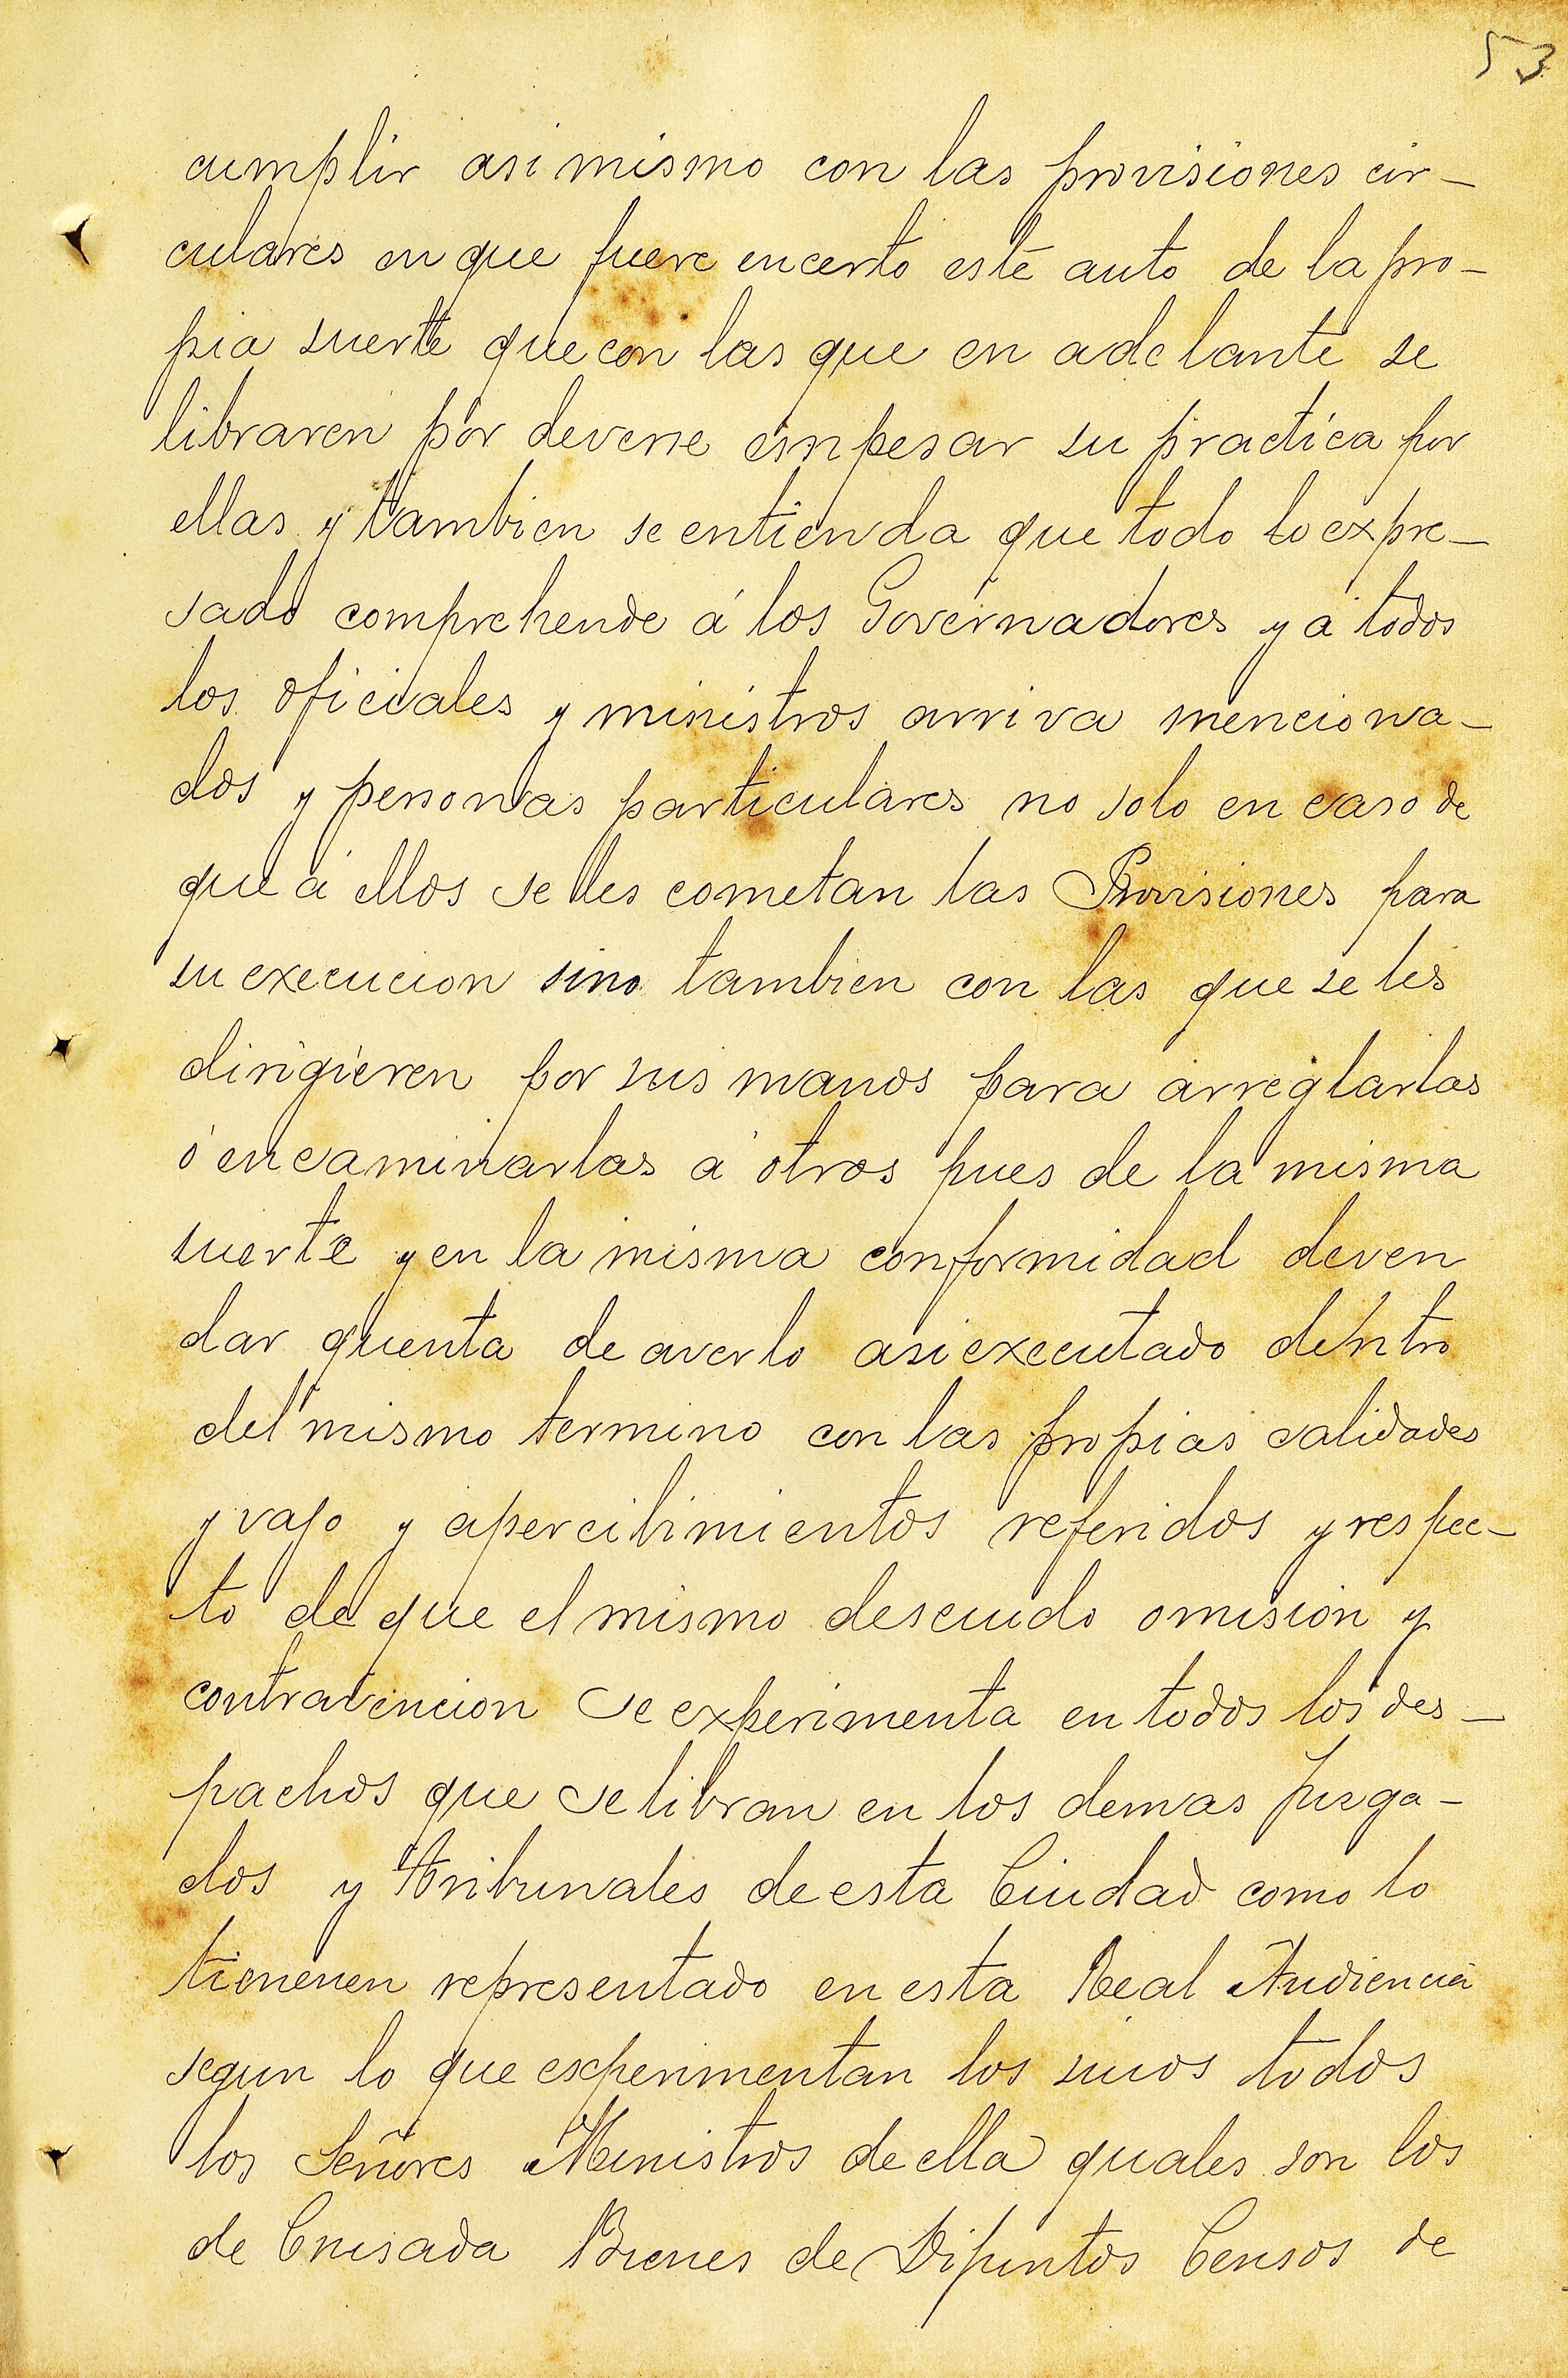 53
cumplir asi mismo con las provisiones cir-
culares en que fuere encerto este auto de la pro-
pia suerte que con las que en adelante se
libraren por deverse empesar su practica por
ellas y tambien se entienda que todo lo expre-
sado comprehende á los Governadores y á todos
los oficiales y ministros arriva menciona-
dos y personas particulares no solo en caso de
que á ellos se les cometan las Provisiones para
su execucion sino tambien con las que se les
dirigieren por sus manos para arreglarlas
ó encaminarlas á otros pues de la misma
suerte y en la misma conformidad deven
dar quenta de averlo asi executado dentro
del mismo termino con las propias calidades
y vajo y apercibimientos referidos y respec-
to de que el mismo descuido omision y
contravencion se experimenta en todos los des-
pachos que se libran en los demas Jusga-
dos y tribunales de esta Ciudad como lo
tienenen representado en esta Real Audiencia
segun lo que experimentan los suios todos
los Señores Ministros de ella quales son los
de Crusada Bienes de Difuntos Censos de